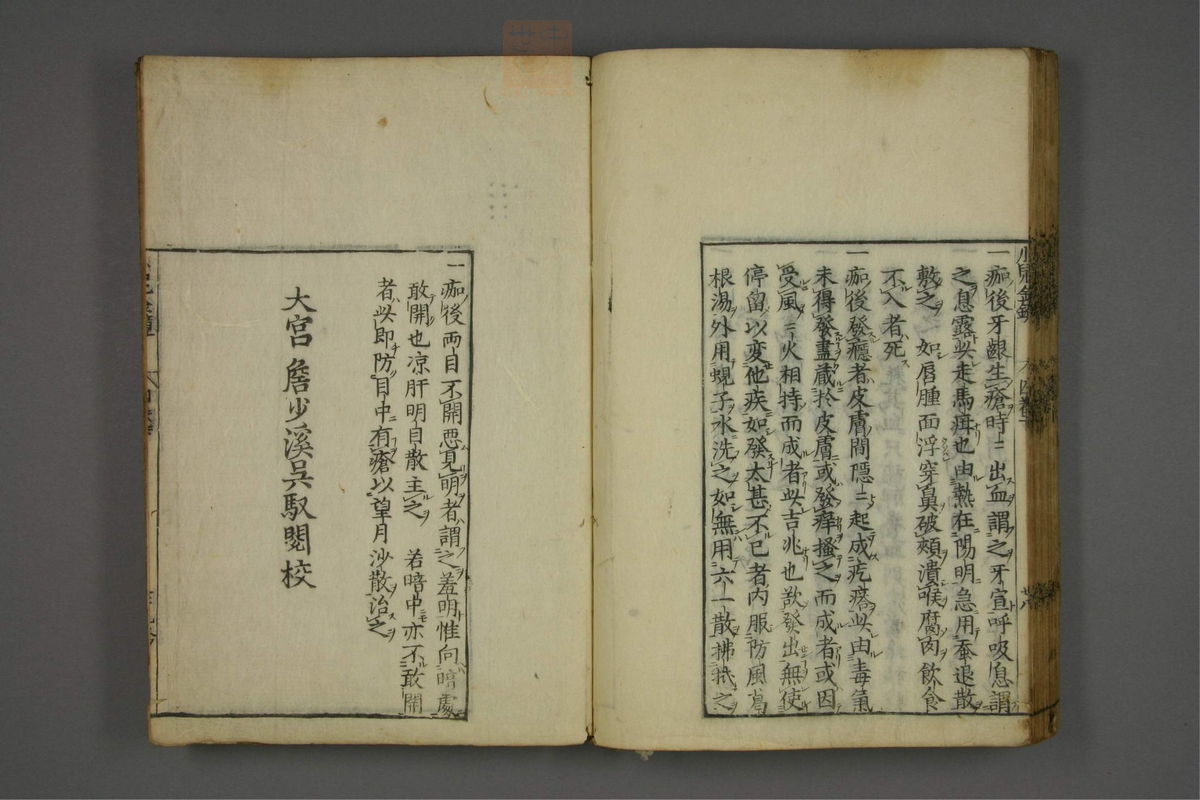 一痂後牙齦生瘡時〻出血謂之牙宣呼吸息謂
之息露此走馬疳也由熱在陽明急用蚕退散
敷之　如唇腫面浮穿鼻破頰潰喉腐肉飲食
不入者死
一痂後發癮者皮膚間隱〻起成疙瘩此由毒氣
未得發盡藏於皮膚或發痒搔之而成者或因
受風〻火相持而成者此吉兆也欲發出無使
停留以変他疾如發太甚不已者内服防風葛
根湯外用蜆子水洗之如無用六一散拂抵之
一痂後両目不開悪見明者謂之羞明惟向暗處
敢開也凉肝明目散主之　若暗中亦不敢開
者此即防目中有瘡以望月沙散治之
大宮　詹少溪呉馭閱校